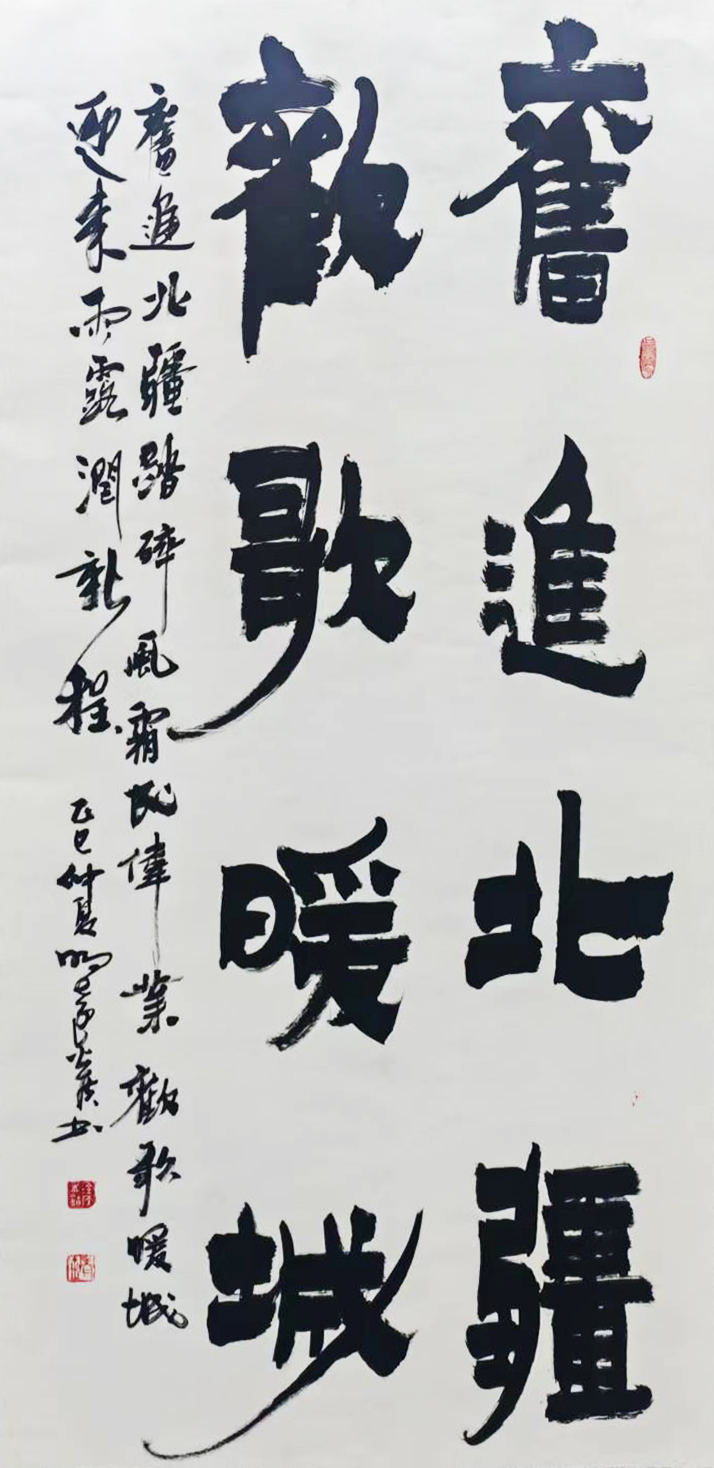 奮進北疆
歡歌暖城
奮進北疆踏碎風霜成偉業歡歌暖城
迎來雨露潤新程 乙巳仲夏 书